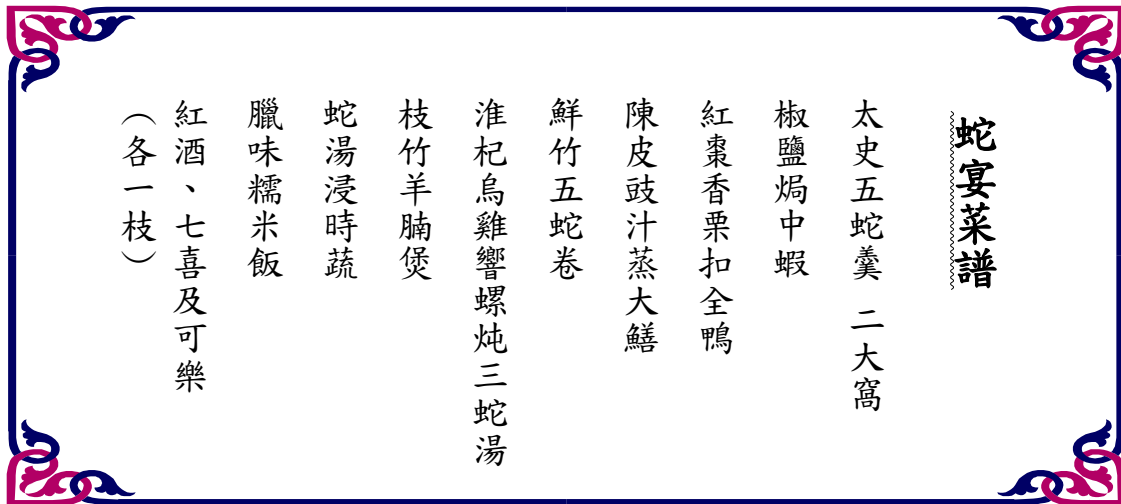 蛇宴菜譜
太史五蛇羹 二大窩
椒鹽焗中蝦
紅棗香栗扣全鴨
陳皮豉汁蒸大鱔
鮮竹五蛇卷
淮杞烏雞響螺炖三蛇湯
枝竹羊腩煲
蛇湯浸時蔬
臘味糯米飯
紅酒、七喜及可樂
（各一枝）